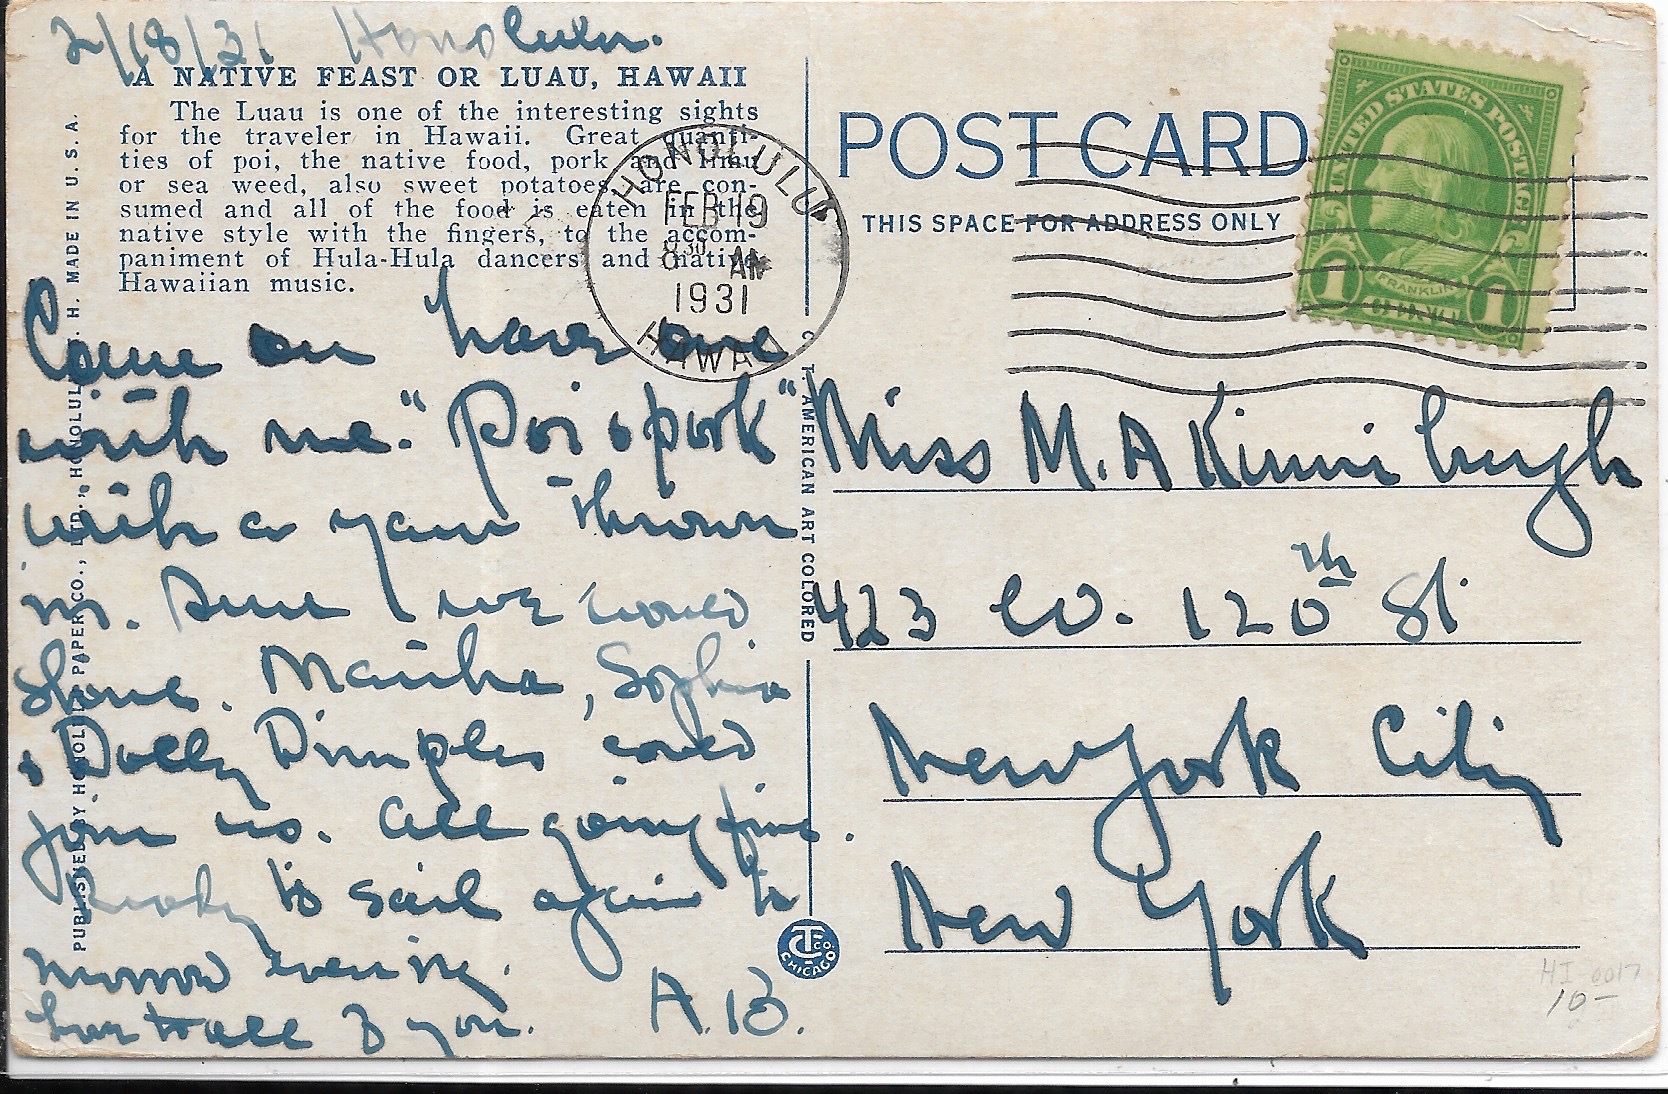 2/18/31 Honolulu.
A NATIVE FEAST OR LUAU, HAWAII
The Luau is one of the interesting sights
for the traveler in Hawaii. Great quanti-
ties of poi, the native food, pork and limu
or sea weed, also sweet potatoes, are con-
sumed and all of the food is eaten in the
native style with the fingers, to the accom-
paniment of Hula-Hula dancers and native
Hawaiian music.
Come on have one
with me. "Poi & pork"
with a yam thrown
in. Sure we would
shine. Martha, Sophia
& Dolly Dimples could
join us. All going fine.
Ready to sail again to
morrow evening.
Luv to all of you. A.B.
PUBLISHED BY HONOLULU PAPER CO., LTD., HONOLULU, T. H. MADE IN U. S. A.
C. T. AMERICAN ART COLORED
CT CO. CHICAGO
HONOLULU
FEB 19
8 30 AM
1931
HAWAII
POST CARD
THIS SPACE FOR ADDRESS ONLY
UNITED STATES POSTAGE
FRANKLIN
1 1
Miss M. A Kinniburgh
423 W. 120th St
New York City
New York
HI-0017
10-